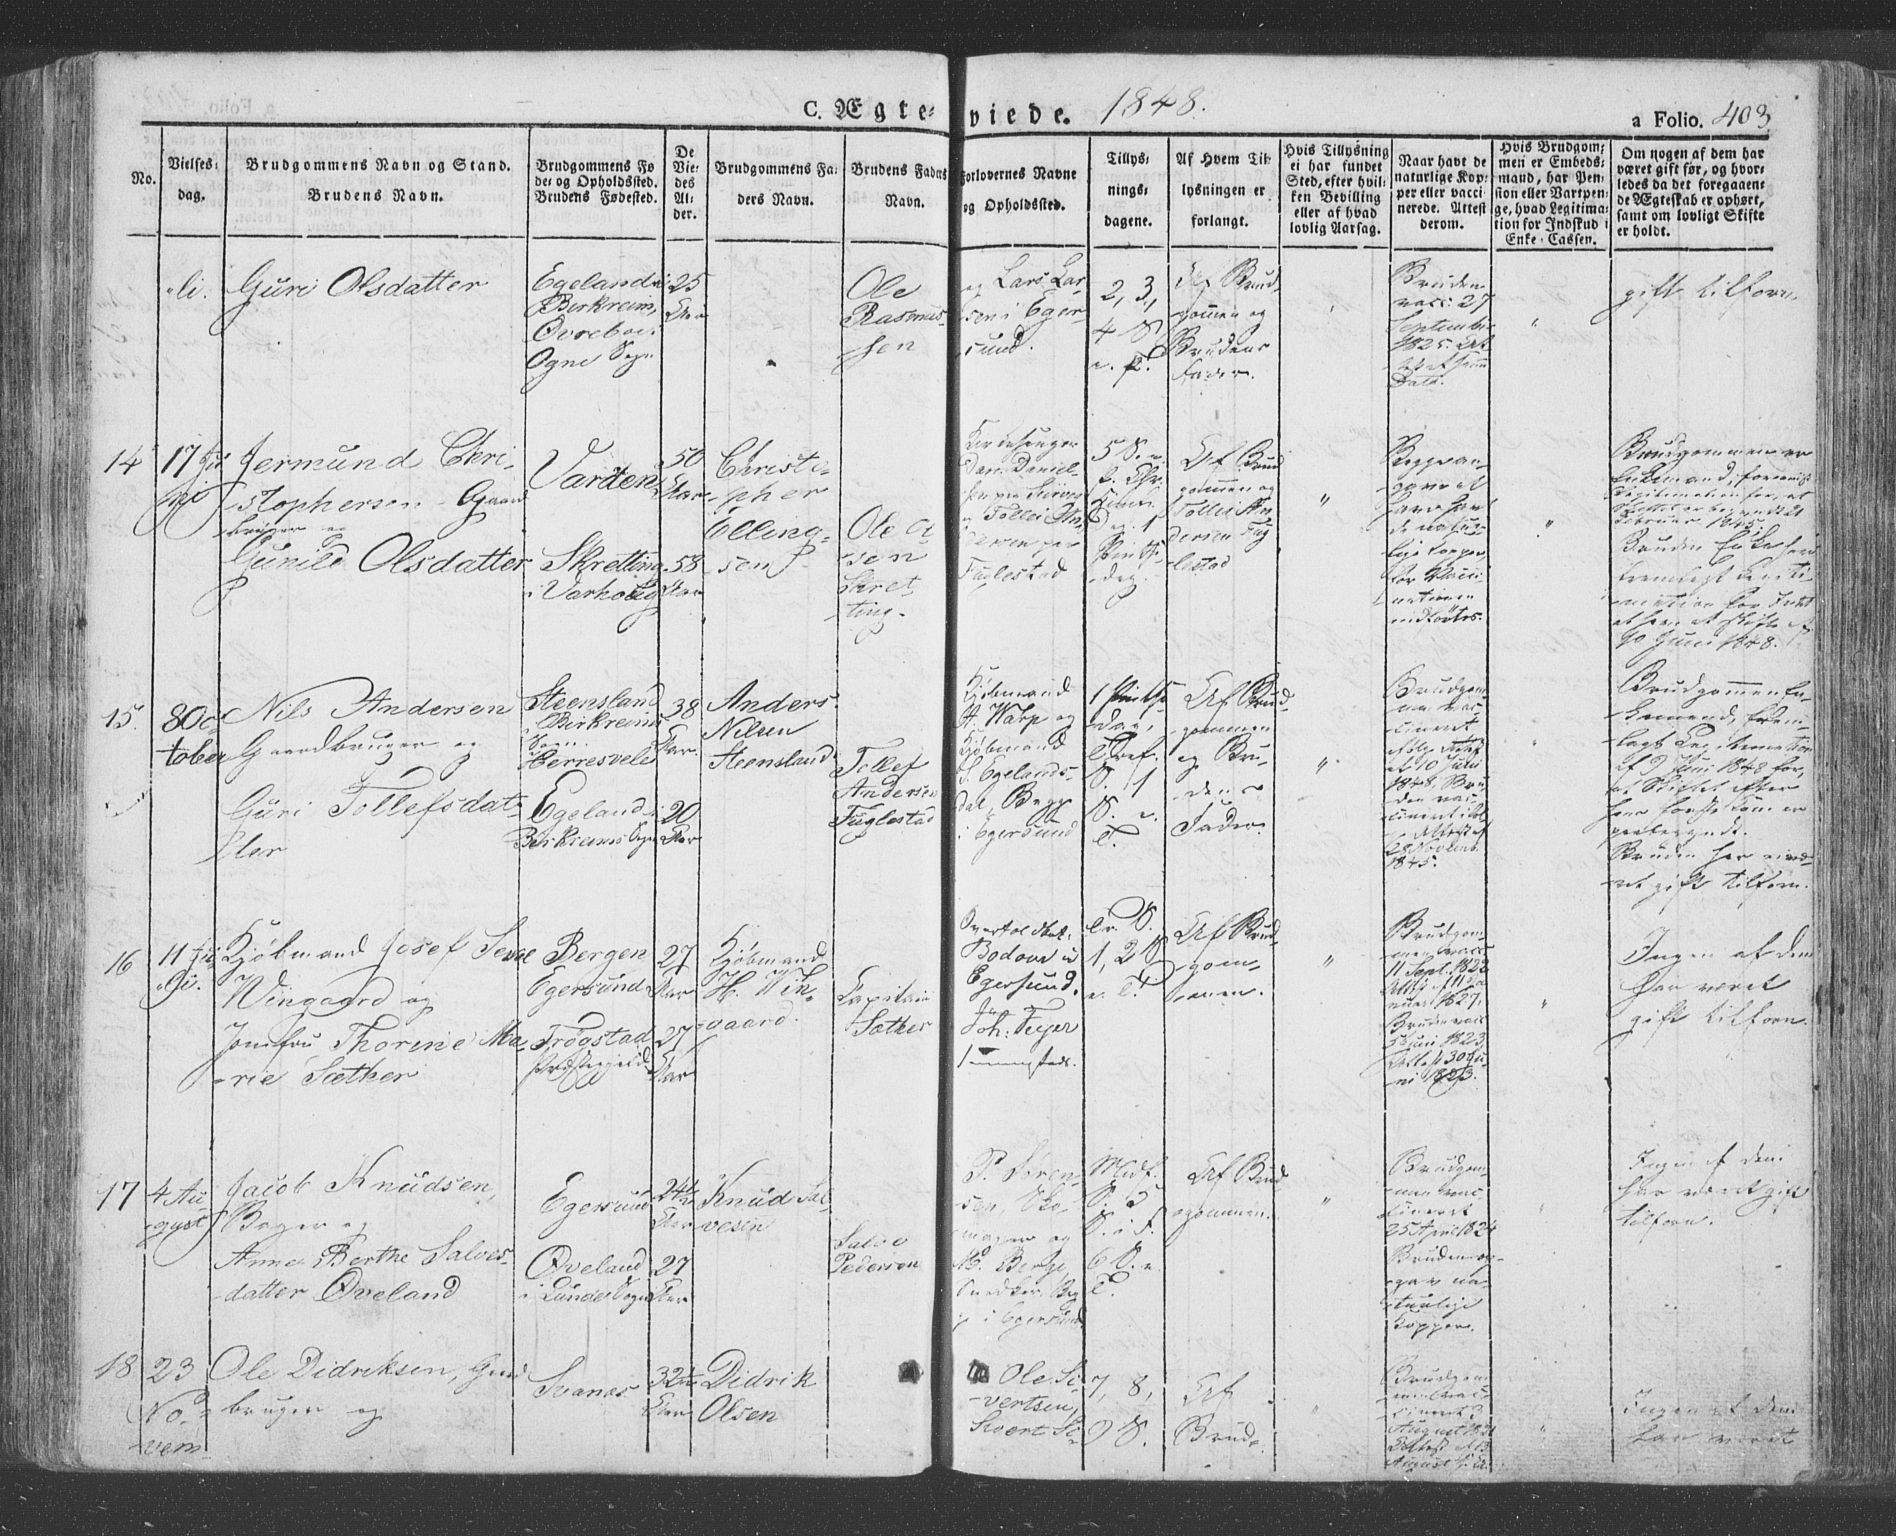 C. Ægte-viede. 1848. a Folio. 403
No.
Vielses-dag.
Brudgommens Navn og Stand.
Brudens Navn.
Brudgommens Fø-
de- og Opholdssted.
Brudens Fødested.
De
Vie-
des
Al-
der.
Brudgommens Fa-
ders Navn.
Brudens Faders
Navn.
Forlovernes Navne
og Opholdssted.
Tillys-
nings-
dagene.
Af Hvem Til-
lysningen er
forlangt.
Hvis Tillysning
ei har fundet
Sted, efter hvil-
ken Bevilling
eller af hvad
lovlig Aarsag.
Naar havt de
naturlige Kop-
per eller vacci-
nerede. Attest
derom.
Hvis Brudgom-
men er Embeds-
mand, har Pen-
sion eller Vartpen-
ge, hvad Legitima-
tion for Indskud i
Enke-Cassen.
Om nogen af dem har
været gift før, og hvor-
ledes da det foregaaen-
de Ægteskab er ophørt,
samt om lovligt Skifte
er holdt.
li.
Guri Olsdatter
Egeland i
Birkreim,
Ovreboe.
Ogne Sogn
25
Aar
Ole
Rasmus-
sen
og Lars Lar-
sen i Eger-
sund.
2, 3,
4 S.
Af Brud-
gommen og
Brudens
Fader.
Bruden
vacc. 27
September
1825.
gift tilforn.
14
17 Ju-
ni
Jermund Chri-
stophersen Gaard-
bruger og
Gunild Olsdatter
Varden
Skretting
i Varhoug
50
Aar
58
Aar
Christo-
pher
Elling-
sen
Ole
sen
Skret-
ting.
Daniel-
og Tollei
Fuglestad
5 S.
Af Brud-
gommen og
Tollei An-
dersen Fug-
lestad
"
have hav-
de natur-
lige Kopper
for Vacci-
nationen
indførtes.
"
Brudgommen er
Enkemand,
Februar 1845.
Bruden Enke
10 Juni 1848.
15.
8 Oc-
tober
Nils Andersen
Gaardbruger og
Guri Tollefsdat-
ter
Steensland
i Birkreims
Sogn.
Herresvele
Egeland i
Birkreims Sogn
38
Aar
20
Aar
Anders
Nilsen
Steensland
Tollef
Andersen
Fuglestad
Kjøbmand
A. Warp og
Kjøbmand
S. Egelands-
dal, Begge
i Egersund
1
Dag,
Tref.
S. 1
S. e.
T.
Af Brud-
gommen
og Bru-
dens
Fader.
"
Brudgom-
men vac-
cineret
10 Juli
1848, Bru-
den vac-
cineret
Attest af
28 Novemb.
1845.
Brudgommen En-
kemand, frem-
lagt Legitimation
af 9 Juni 1848 for,
at Skiftet efter
hans første Kone er
paabegyndt.
Bruden har ei vær-
et gift tilforn.
16
11 Ju-
li.
Kjøbmand Josef
Wingaard og
Jomfru Thorine Ma-
rie Sæther
Bergen
Egersund
Trögstad
Præstegjeld
27
Aar
27
Aar
Kjøbmand
H. Win-
gaard.
Capitain
Sæther
Overtoldbet.
i
Egersund.
Joh. Feyer
S.
1, 2 S.
e. T.
Af Brud-
gom-
men.
"
Brudgom-
men vacc.
11 Sept. 1822
1827.
Bruden vacc.
5 Juni 1823,
30 Ju-
ni 1823.
"
Ingen af dem
har været
gift tilforn.
17
4 Au-
gust
Jacob Knudsen,
Bager og
Anne Berthe Salves-
datter Øveland
Egersund
Øveland
i Lunde Sogn
24½
Aar
27
Aar
Knud Sal-
vesen
Salve
Pedersen
P. Søren-
sen, Sko-
mager og
Berge,
Snedker, Beg-
ge i Egersund
Midf.
S.
S. i F.
6 S. e.
T.
Af Brud-
gommen.
"
Brudgom-
men vac-
cineret
25 April 1824
Bruden op-
gav na-
turlige
Kopper.
Ingen af dem
har været gift
tilforn.
18
23
No-
vem-
Ole Didriksen, Gaard-
bruger og
Svanes
32½
Aar
Didrik
Olsen
Ole Si-
vertsen,
Sivert
7, 8,
9 S.
Af
Brud-
Brudgom-
men vac-
cineret
August 1831
Attest af 13
August
"
Ingen af dem
har været